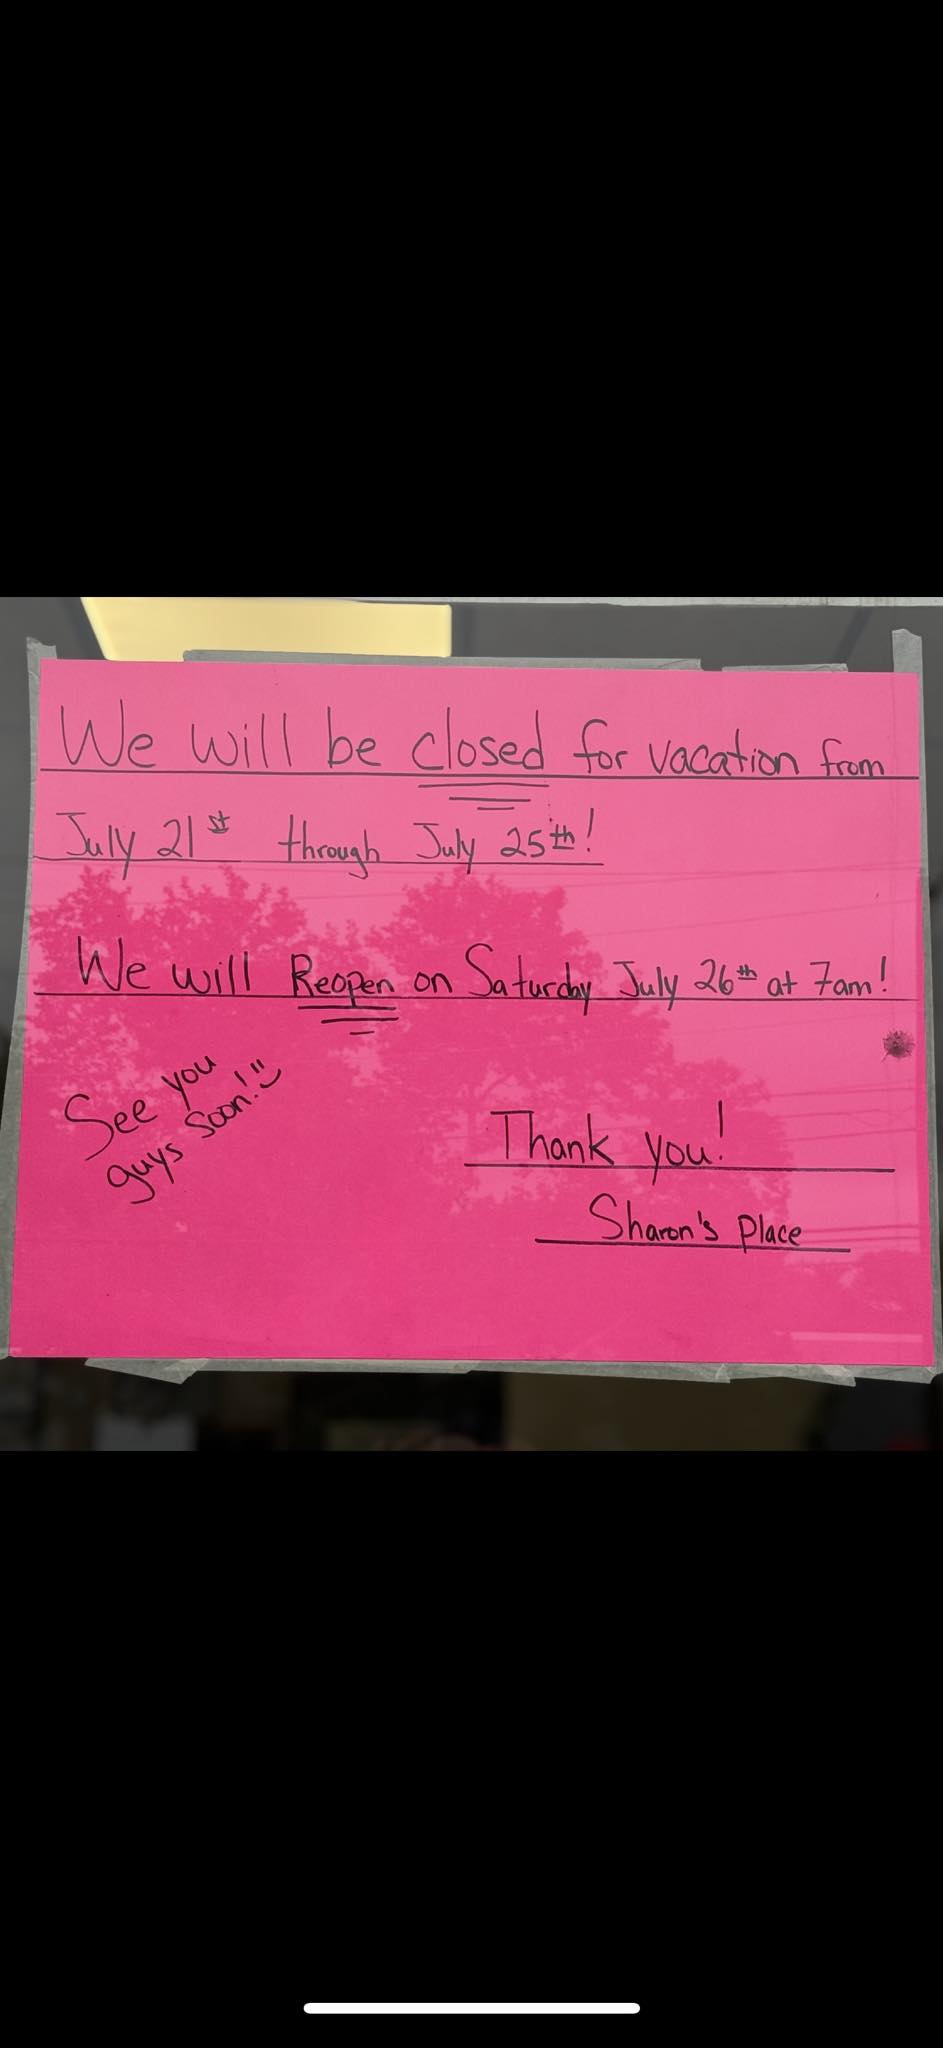 We will be closed for vacation from
July 21st through July 25th!
We will Reopen on Saturday July 26th at 7am!
See you
guys soon! :)
Thank you!
Sharon's Place